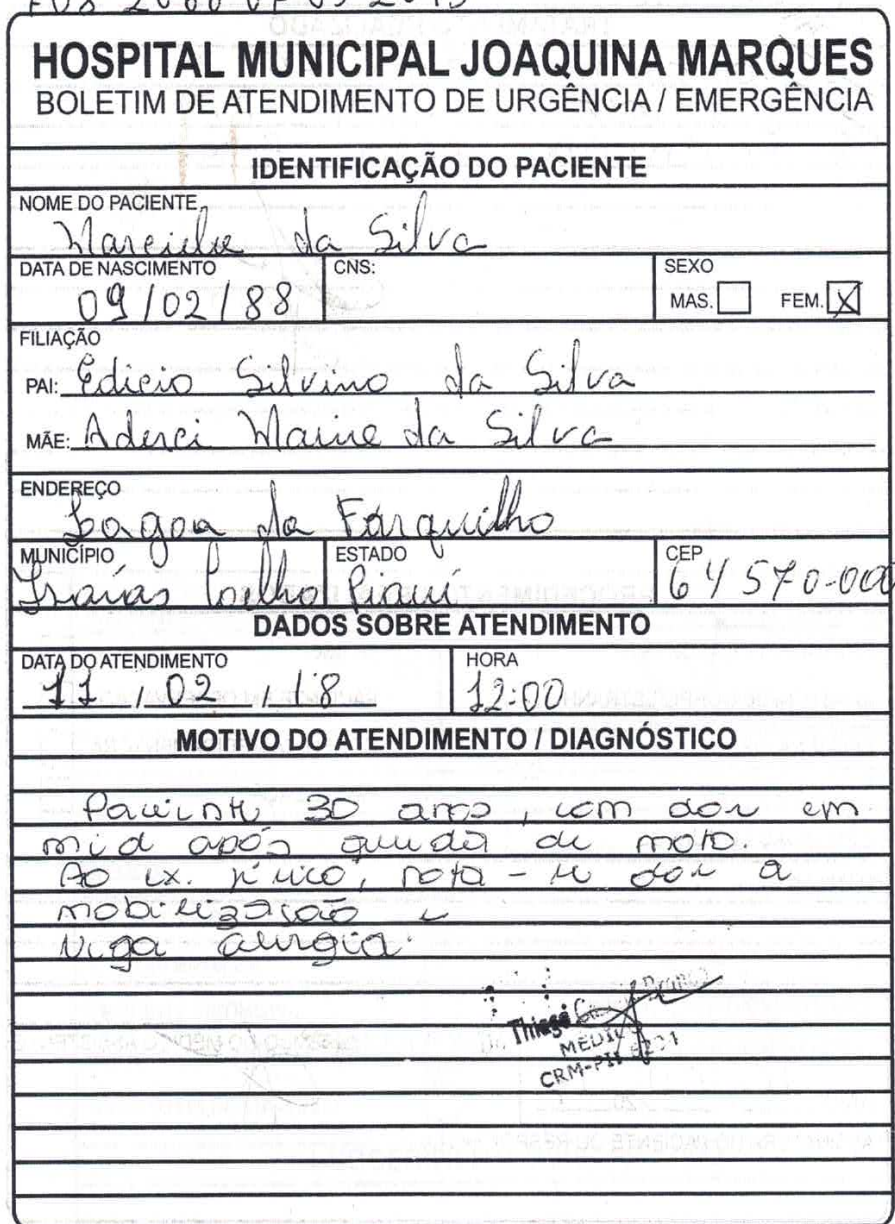 HOSPITAL MUNICIPAL JOAQUINA MARQUES
BOLETIM DE ATENDIMENTO DE URGÊNCIA / EMERGÊNCIA
IDENTIFICAÇÃO DO PACIENTE
NOME DO PACIENTE
da Silva
DATA DE NASCIMENTO CNS: SEXO
09/02/88 MAS. FEM. X
FILIAÇÃO
PAI: Edicio Silvino da Silva
MÃE: Aderci da Silva
ENDEREÇO
Lagoa da Forquilho
MUNICÍPIO ESTADO CEP
Isaías Coelho Piauí 64570-000
DADOS SOBRE ATENDIMENTO
DATA DO ATENDIMENTO HORA
11 / 02 / 18 12:00
MOTIVO DO ATENDIMENTO / DIAGNÓSTICO
Paciente, 30 anos, com dor em
mid após queda de moto.
Ao ex. físico, nota-se dor a
mobilização e
nega alergia.
MÉDICO
CRM-PI